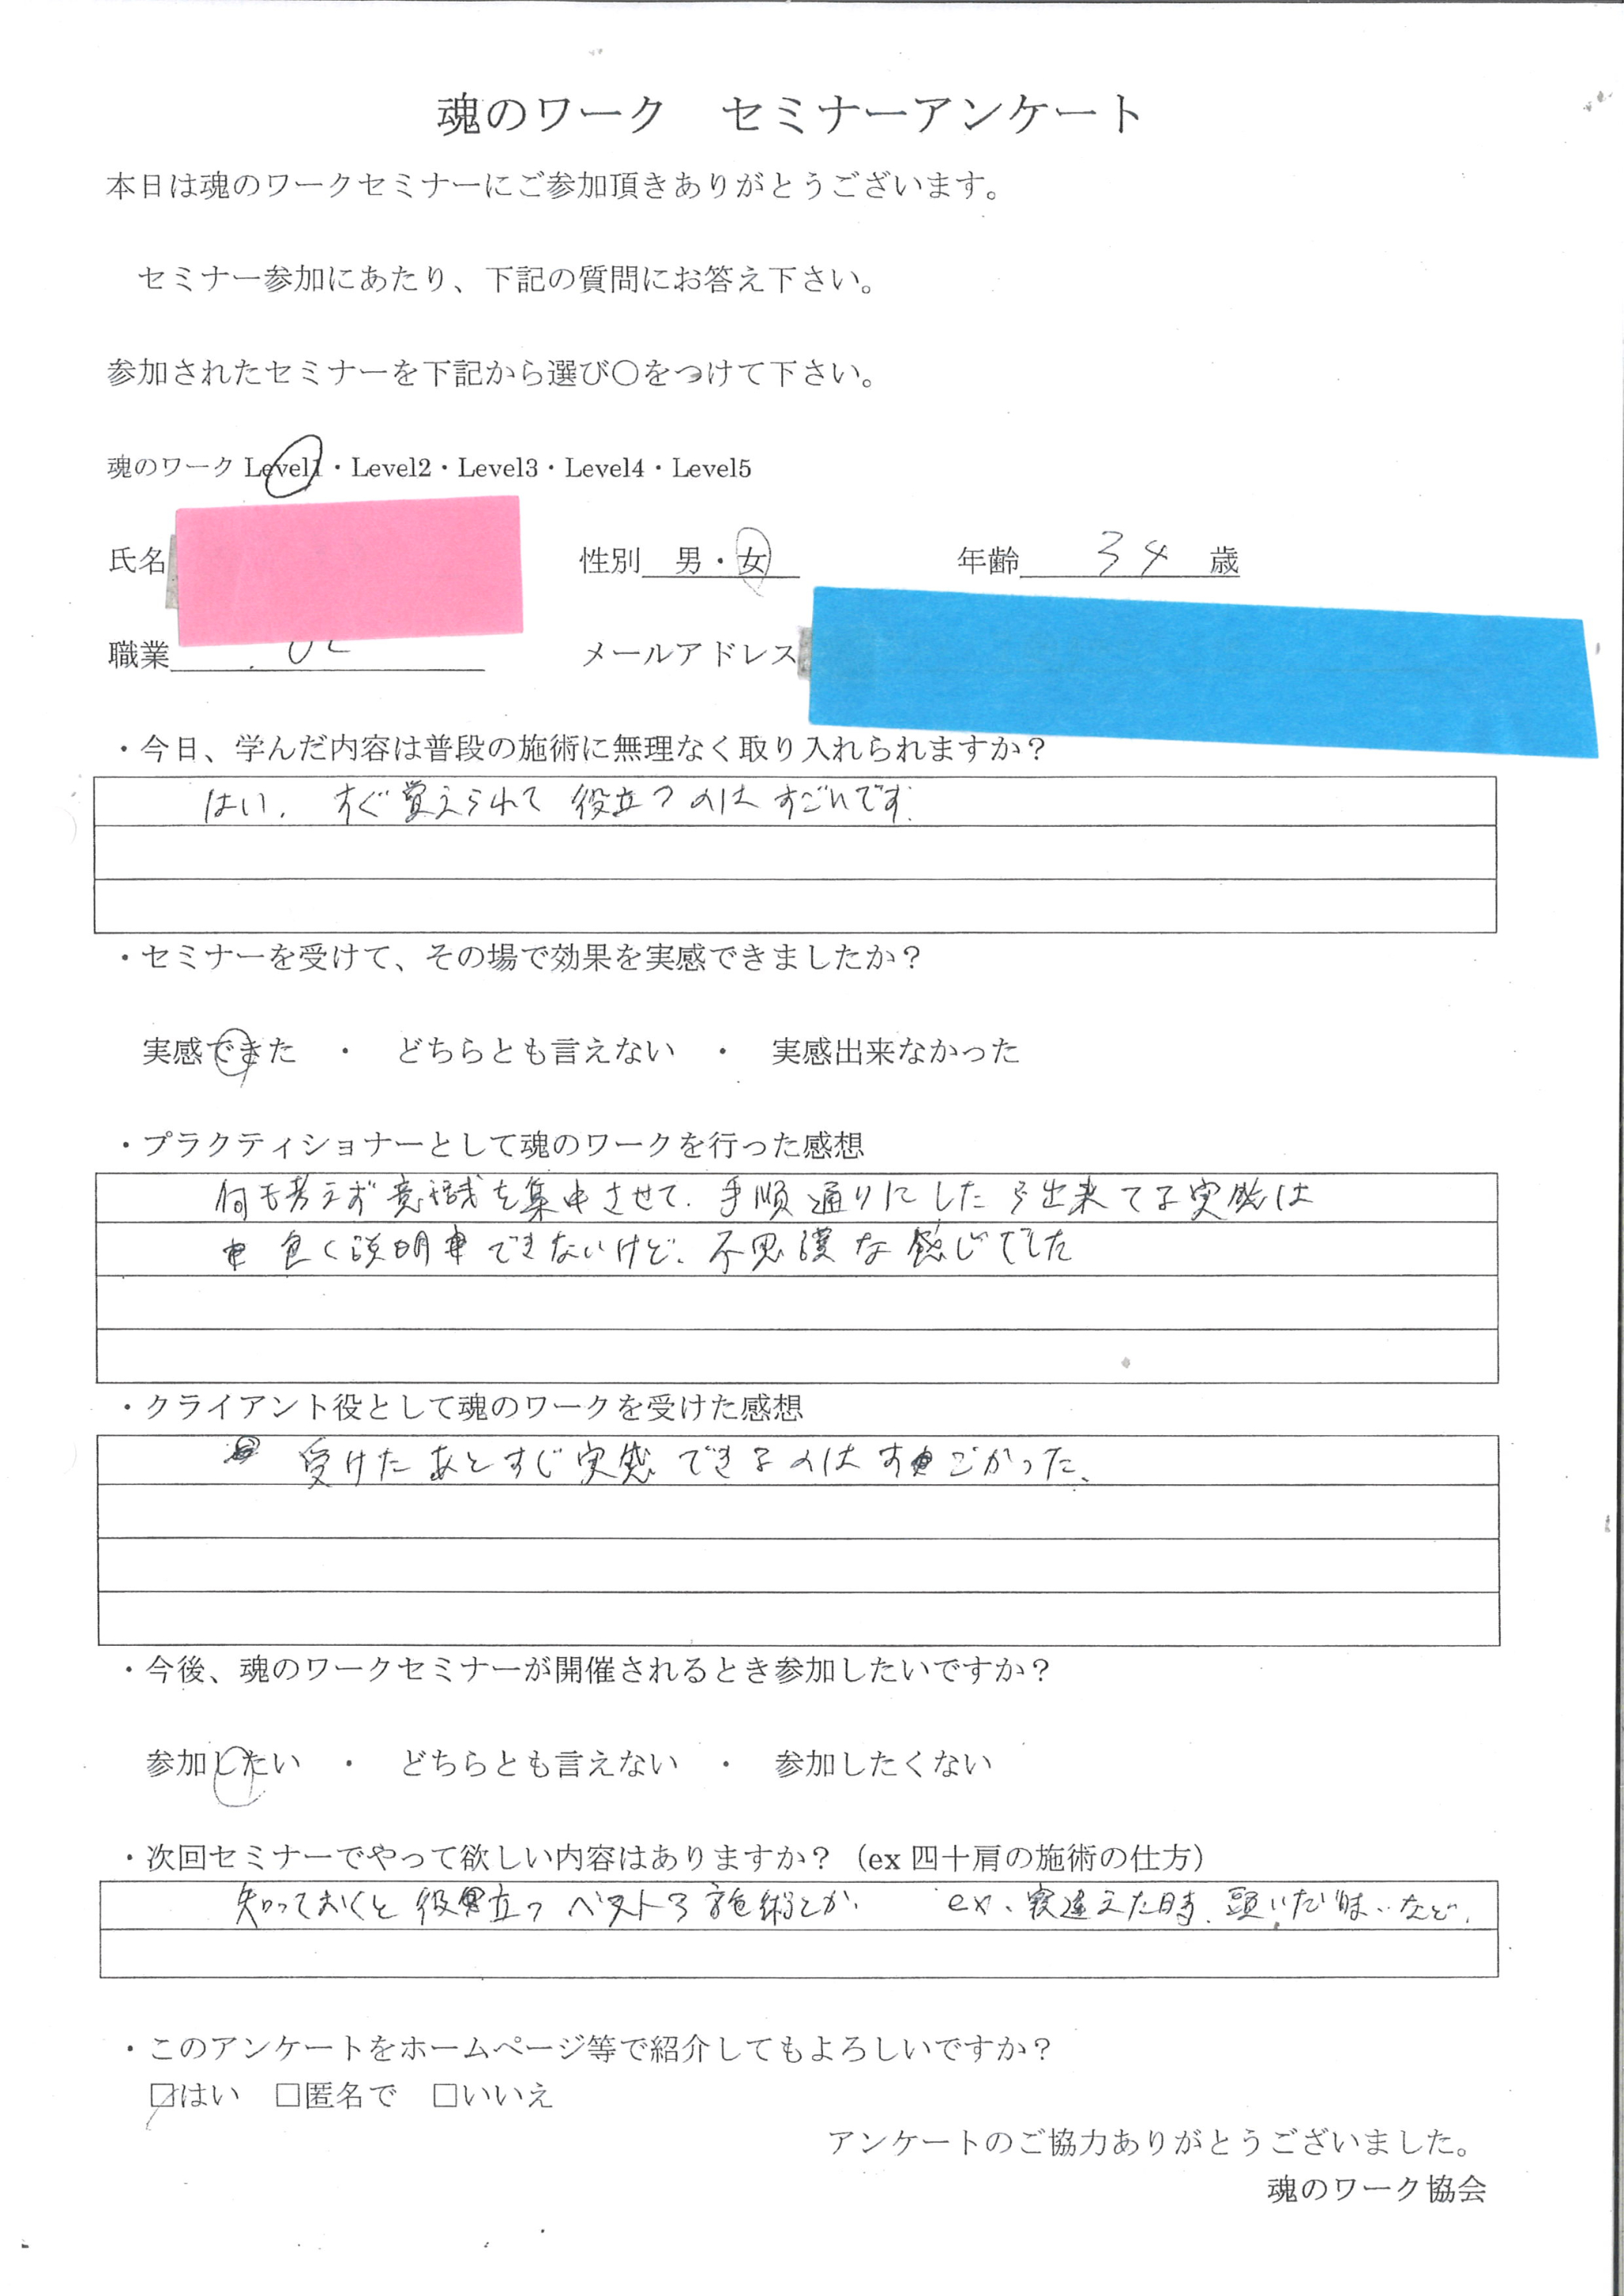 魂のワーク　セミナーアンケート
本日は魂のワークセミナーにご参加頂きありがとうございます。
セミナー参加にあたり、下記の質問にお答え下さい。
参加されたセミナーを下記から選び〇をつけて下さい。
魂のワーク Level1・Level2・Level3・Level4・Level5
氏名 性別 男・女 年齢 34 歳
職業 メールアドレス
・今日、学んだ内容は普段の施術に無理なく取り入れられますか？
はい. すぐ覚えられて 役立つのは すごいです.
・セミナーを受けて、その場で効果を実感できましたか？
実感できた ・ どちらとも言えない ・ 実感出来なかった
・プラクティショナーとして魂のワークを行った感想
何も考えず意識を集中させて. 手順通りにしたら出来てる実感は
良く説明できないけど. 不思議な感じでした
・クライアント役として魂のワークを受けた感想
受けたあとすぐ実感できるのはすごかった、
・今後、魂のワークセミナーが開催されるとき参加したいですか？
参加したい ・ どちらとも言えない ・ 参加したくない
・次回セミナーでやって欲しい内容はありますか？（ex 四十肩の施術の仕方）
知っておくと役立つ ベスト3 施術とか. ex. 寝違えた時. 頭いた 時.. など.
・このアンケートをホームページ等で紹介してもよろしいですか？
☑はい □匿名で □いいえ
アンケートのご協力ありがとうございました。
魂のワーク協会